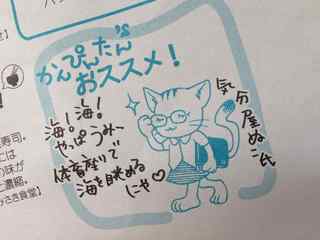 かんぴんたん's
おススメ！
海！海！
海。やっぱうみ〜
体育座りで
海を眺める
にゃ♡
気分屋ぬこ氏
寿司。
には
の味が
に濃縮。
さき食堂】